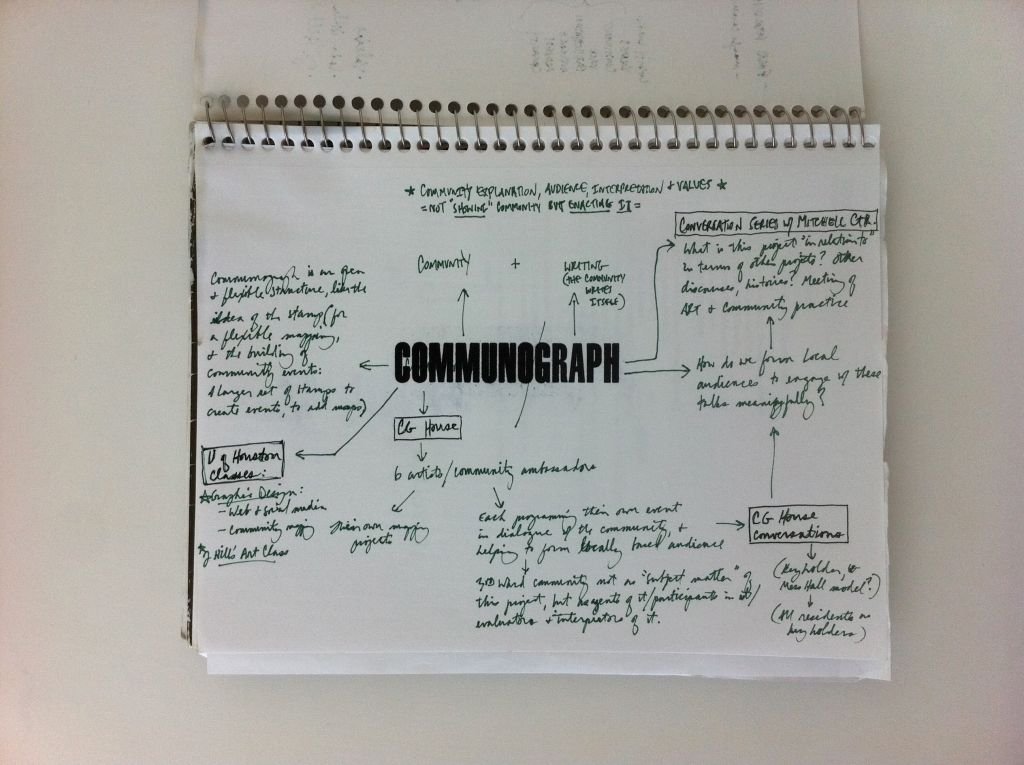 ★ COMMUNITY EXPLANATION, AUDIENCE, INTERPRETATION + VALUES ★
= NOT "SHOWING" COMMUNITY BUT ENACTING IT =
COMMUNITY + WRITING
(THE COMMUNITY
WRITES
ITSELF)
CONVERSATION SERIES W/ MITCHELL CTR.
What is this project "in relation to"
in terms of other projects? Other
discourses, histories? Meeting of
ART + Community practice
Communograph is an open
+ flexible structure, like the
idea of the stamp (for
a flexible mapping,
+ the building of
community events:
A larger set of stamps to
create events, to add maps)
COMMUNOGRAPH
How do we form local
audiences to engage w/ these
talks meaningfully?
CG House
U of Houston
Classes:
★ Graphic Design:
- Web + Social media
- Community mapping
★ Hill's Art Class
6 artists/community ambassadors
Their own mapping
projects
Each programming their own event
in dialogue of the community, +
helping to form locally based audience
3RD Ward community not as "subject matter" of
this project, but as agents of it/participants in it/
evaluators + interpretors of it.
CG House
Conversations
(Keyholder,
Mess Hall model?)
(All residents as
keyholders)